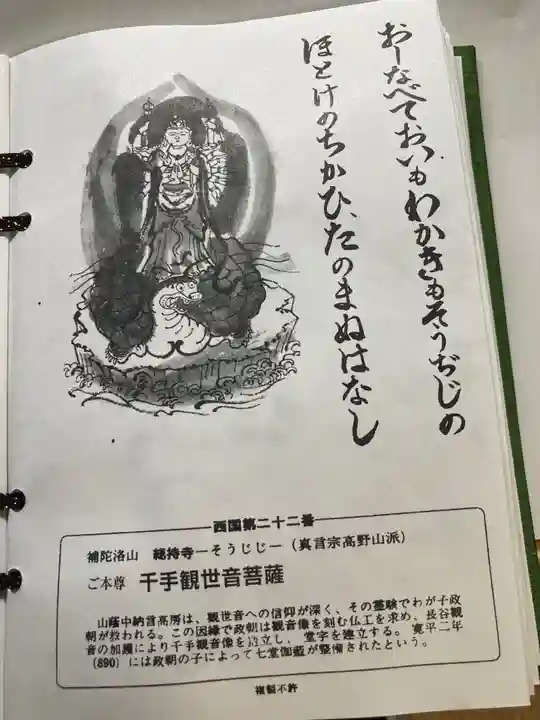 おしなべておいもわかきもそうぢじの
ほとけのちかひ、たのまぬはなし
西国第二十二番
補陀洛山 総持寺ーそうじじー(真言宗高野山派)
ご本尊 千手観世音菩薩
山蔭中納言高房は、観世音への信仰が深く、その霊験でわが子政
朝が救われる。この因縁で政朝は観音像を刻む仏工を求め、長谷観
音の加護により千手観音像を造立し、堂宇を建立する。寛平二年
(890)には政朝の子によって七堂伽藍が整備されたという。
複製不許